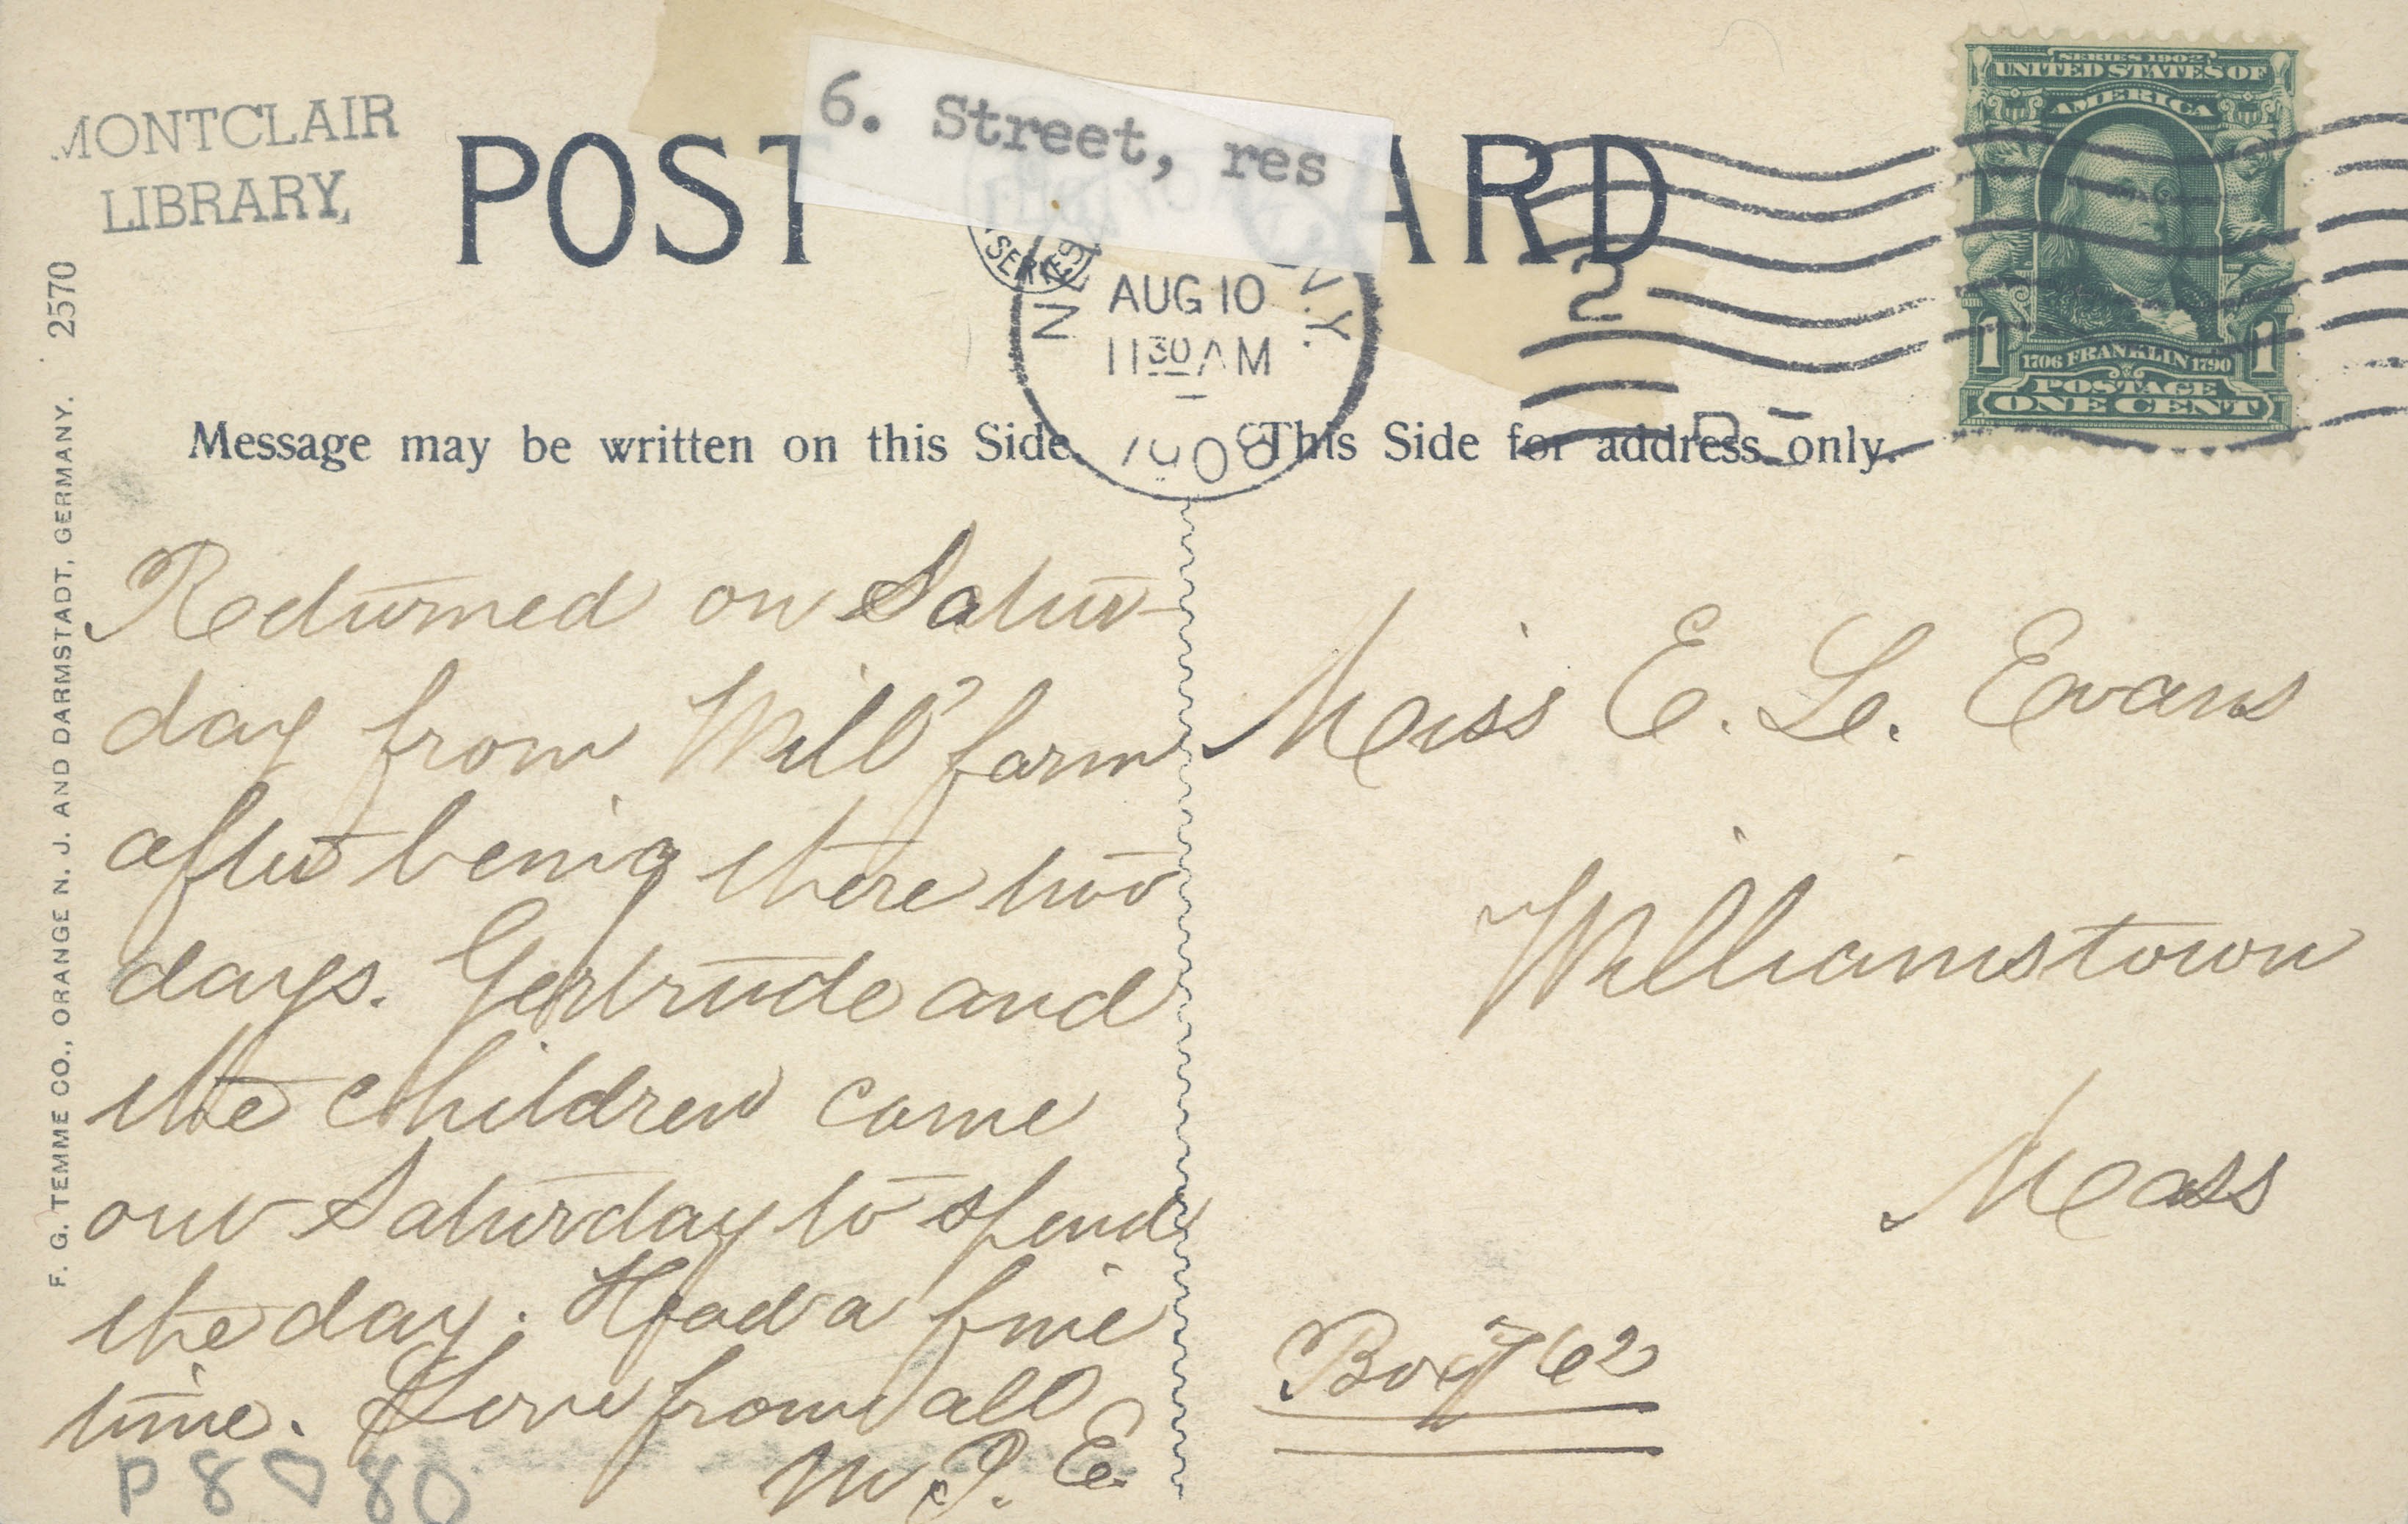 MONTCLAIR
LIBRARY,
6. Street, res
POST CARD
SERIES 1902
UNITED STATES OF
AMERICA
1706 FRANKLIN 1790
1 1
POSTAGE
ONE CENT
N.Y.
AUG 10
11 30 AM
1908
2
D
Message may be written on this Side. This Side for address only.
F. G. TEMME CO., ORANGE N. J. AND DARMSTADT, GERMANY. 2570
Returned on Satur-
day from Will' farm
after being there two
days. Gertrude and
the children came
our Saturday to spend
the day. Had a fine
time. Love from all
M. J. E.
Miss E. L. Evans
Williamstown
Mass
Box 762
P 8080